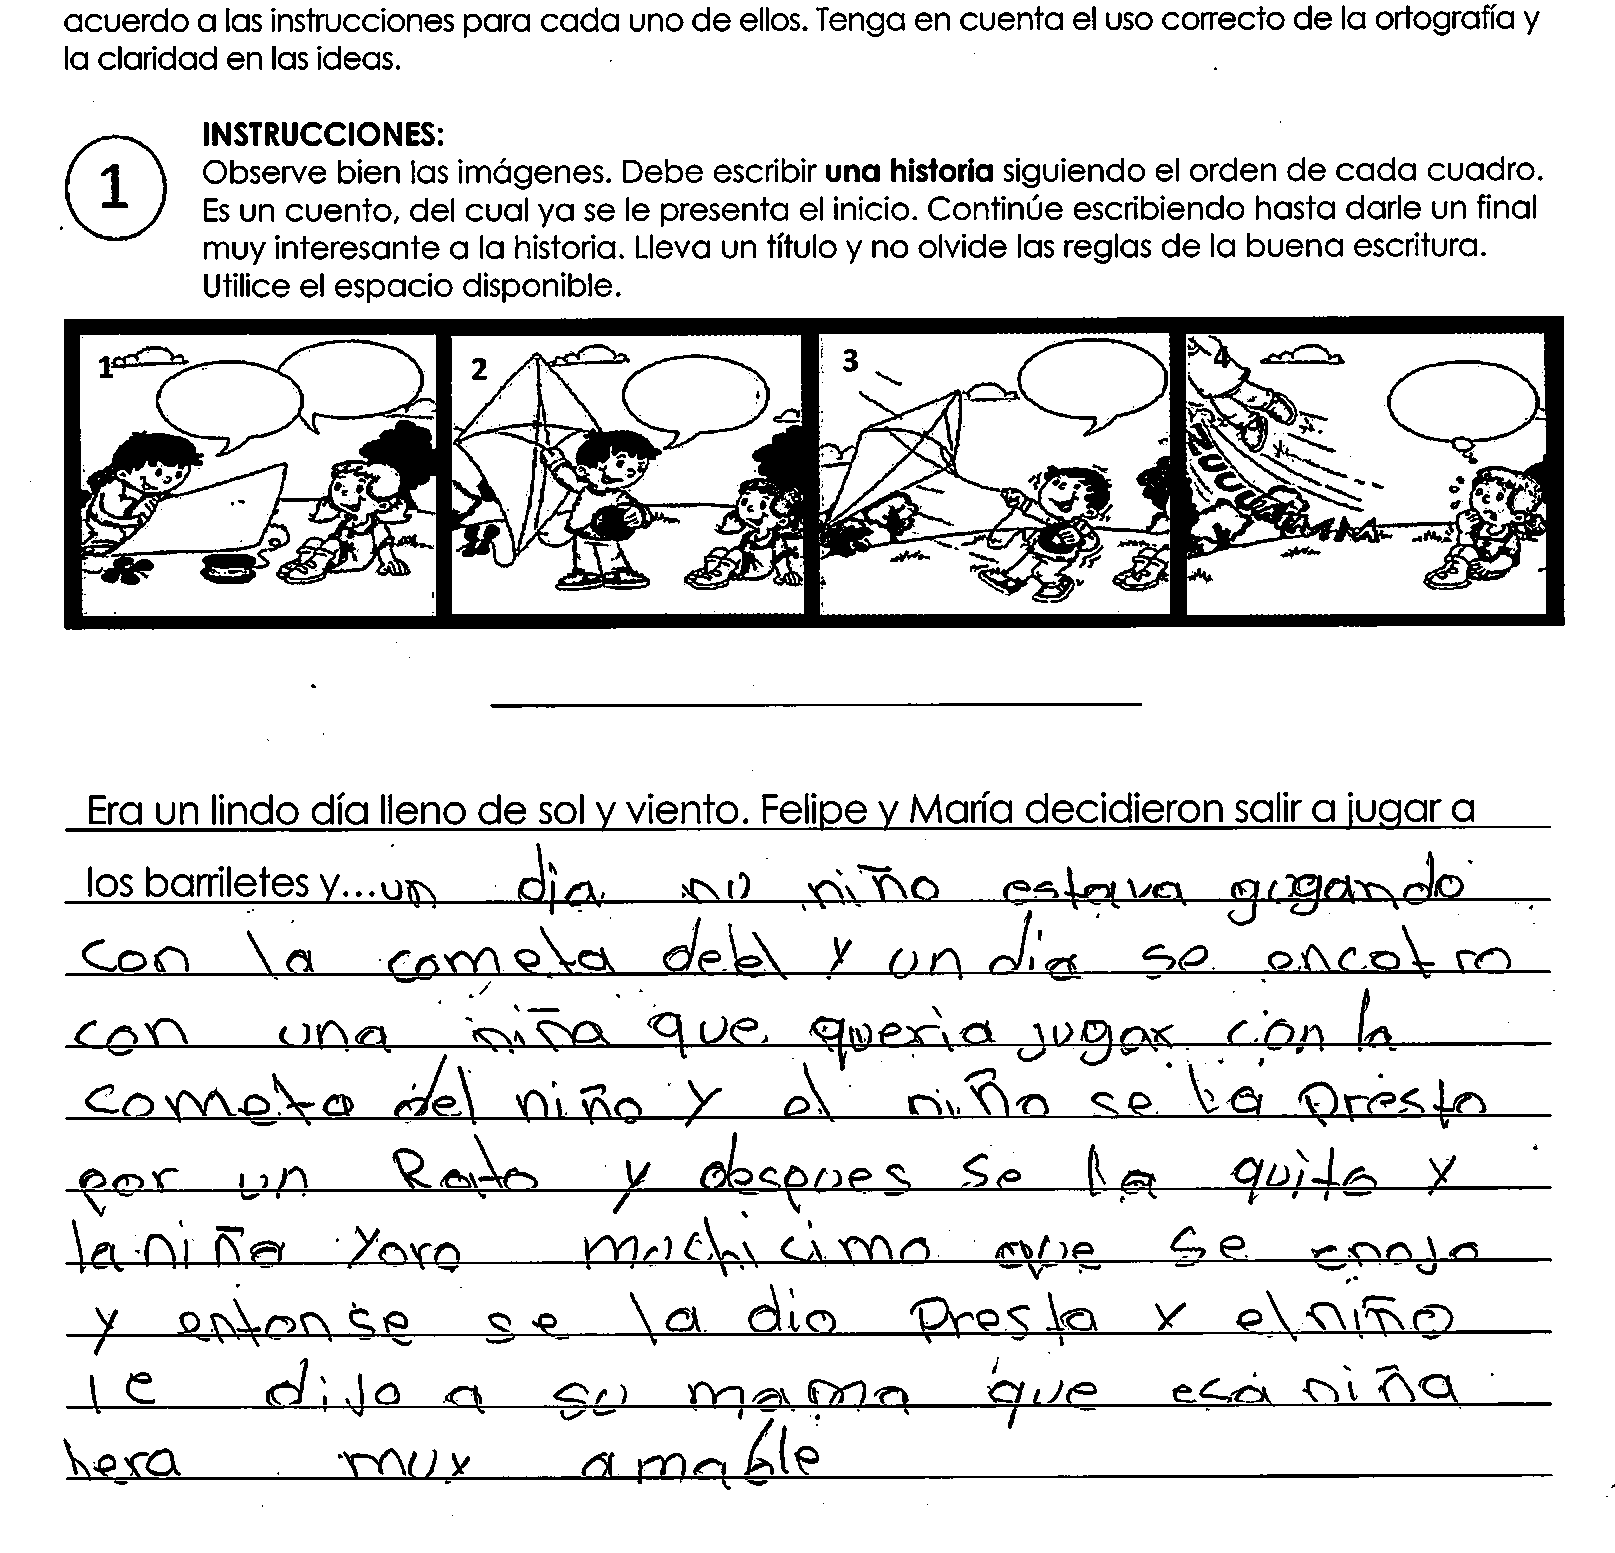 acuerdo a las instrucciones para cada uno de ellos. Tenga en cuenta el uso correcto de la ortografía y
la claridad en las ideas.
1
INSTRUCCIONES:
Observe bien las imágenes. Debe escribir una historia siguiendo el orden de cada cuadro.
Es un cuento, del cual ya se le presenta el inicio. Continúe escribiendo hasta darle un final
muy interesante a la historia. Lleva un título y no olvide las reglas de la buena escritura.
Utilice el espacio disponible.
1 2 3 4
ZUUUUMMM
Era un lindo día lleno de sol y viento. Felipe y María decidieron salir a jugar a
los barriletes y...un dia un niño estava gugando
con la cometa deel y un dia se encotro
con una niña que queria jugar con la
cometa del niño y el niño se la presto
por un Rato y despues se la quito y
la niña yoro muchicimo que se enojo
y entonse se la dio presta y el niño
le dijo a su mama que esa niña
hera muy amable